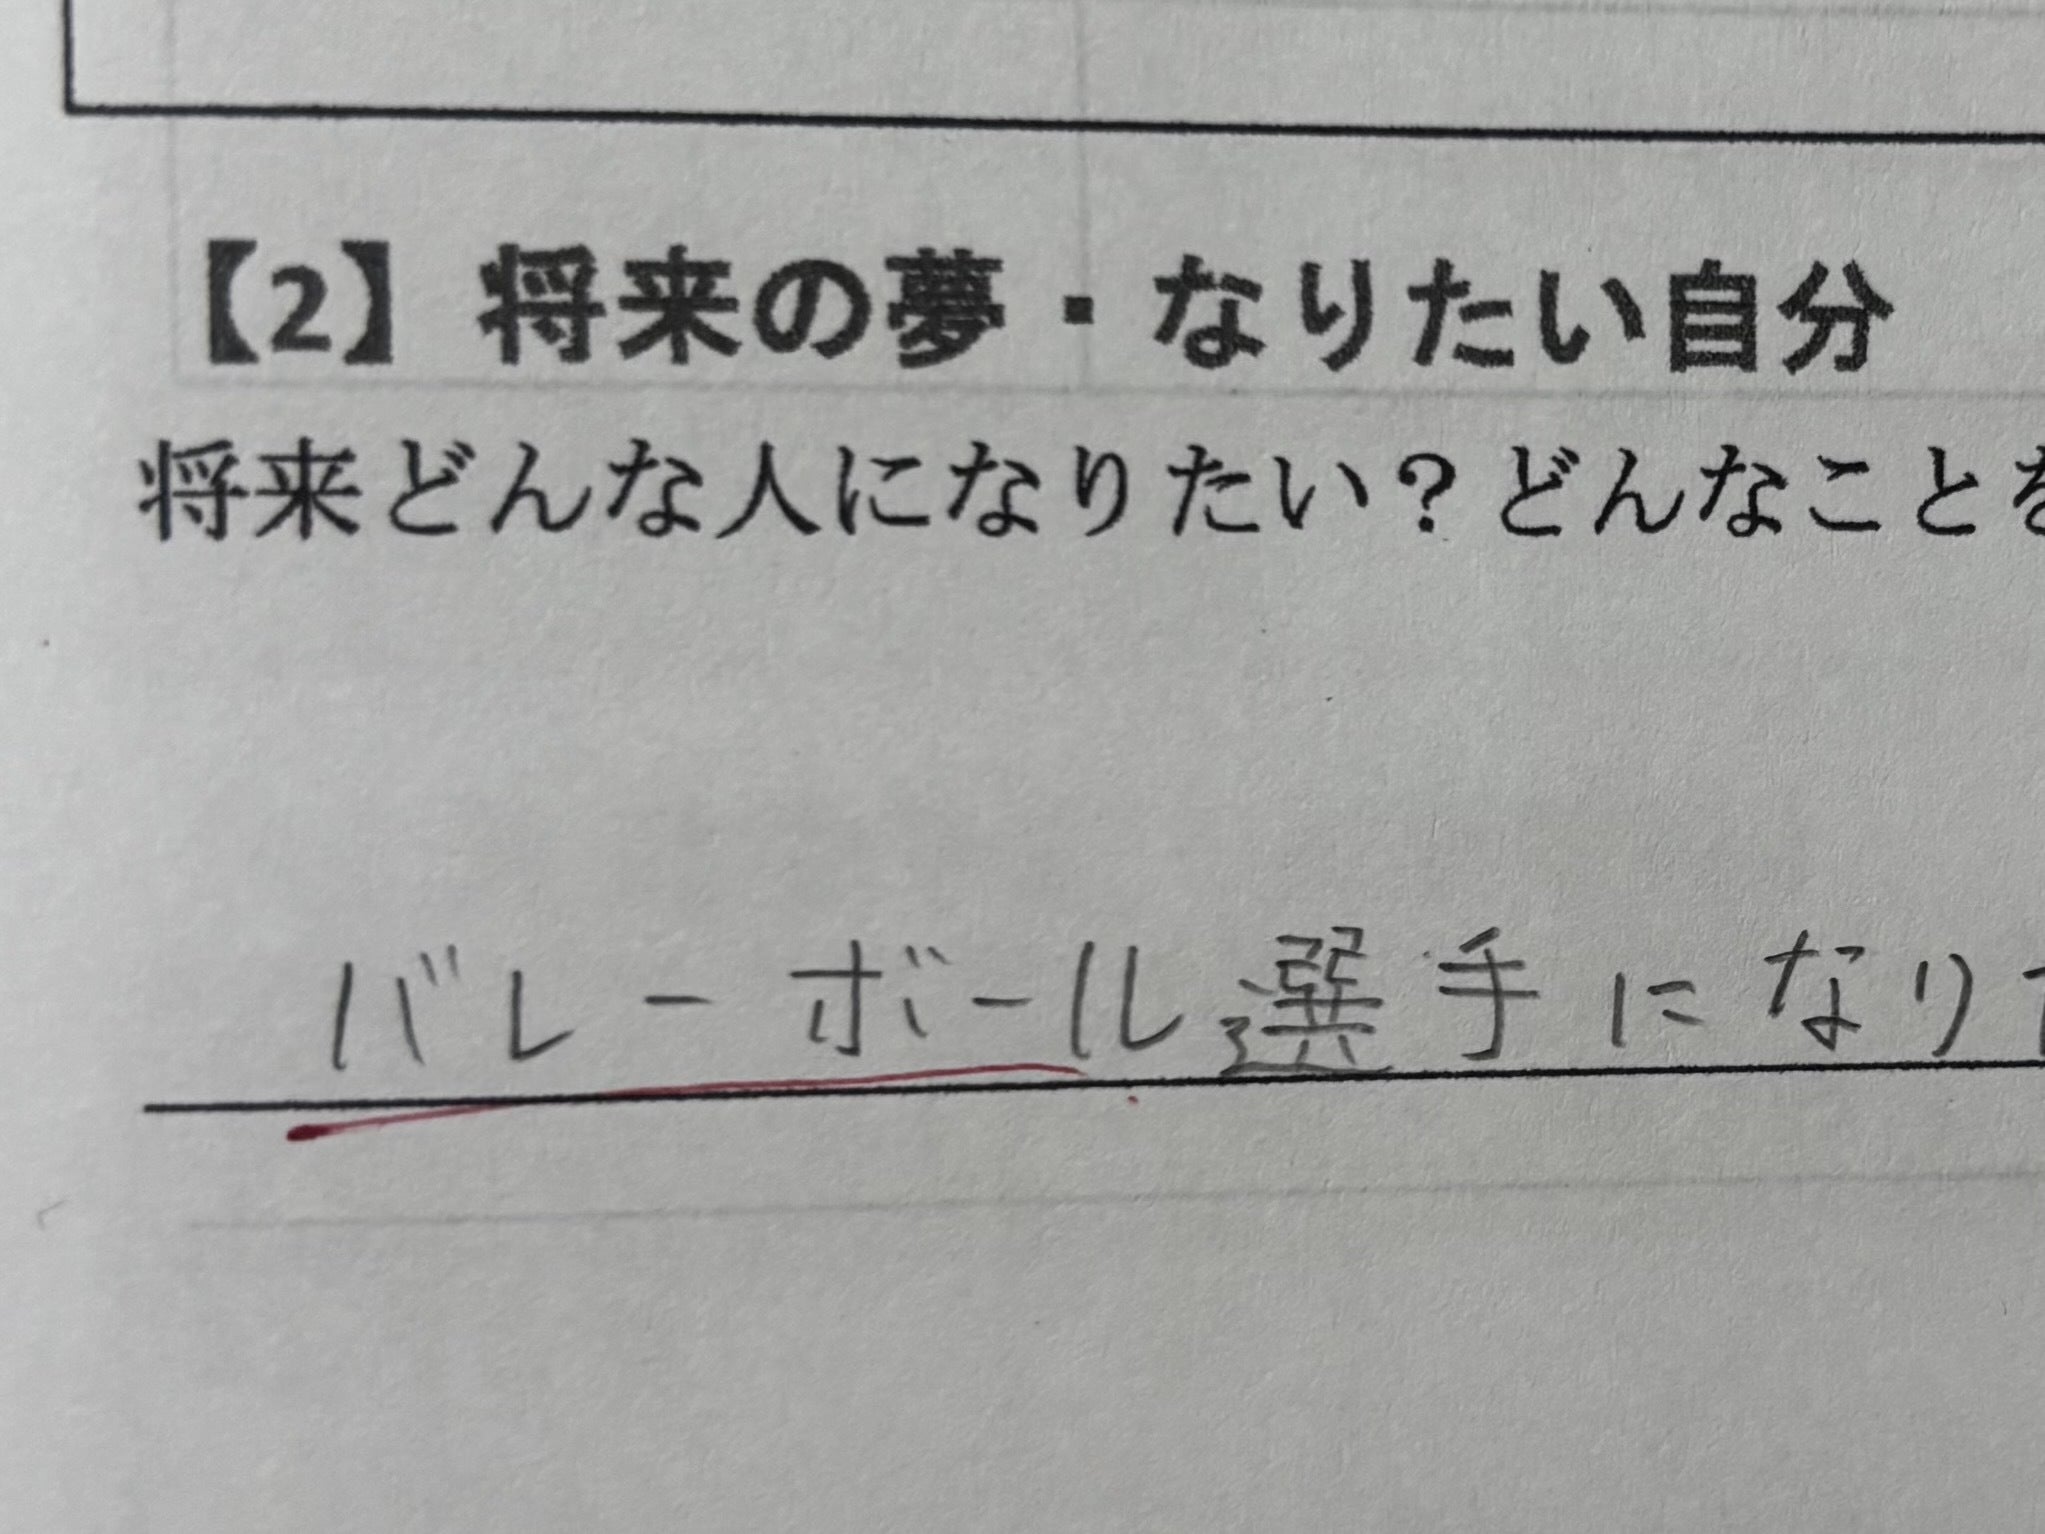 【2】将来の夢・なりたい自分
将来どんな人になりたい？どんなことを
バレーボール選手になり